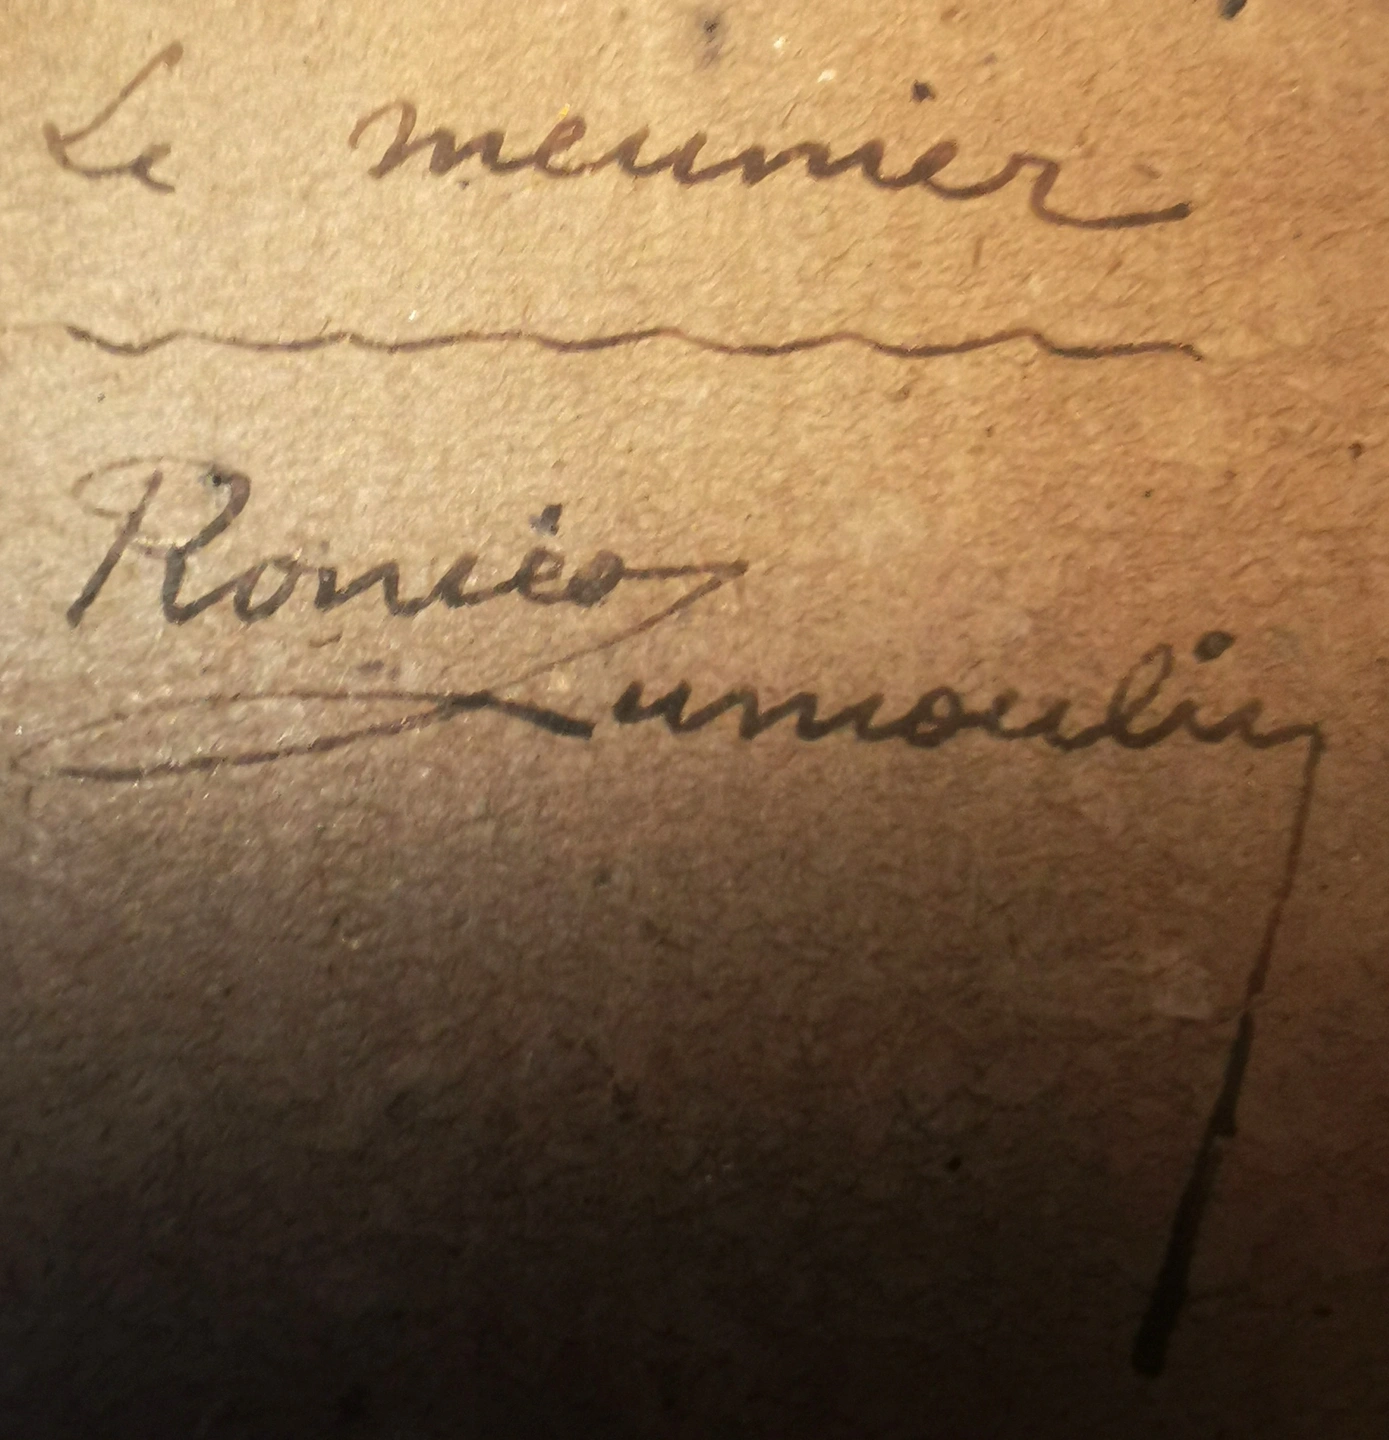 Le meunier
Roméo
Dumoulin